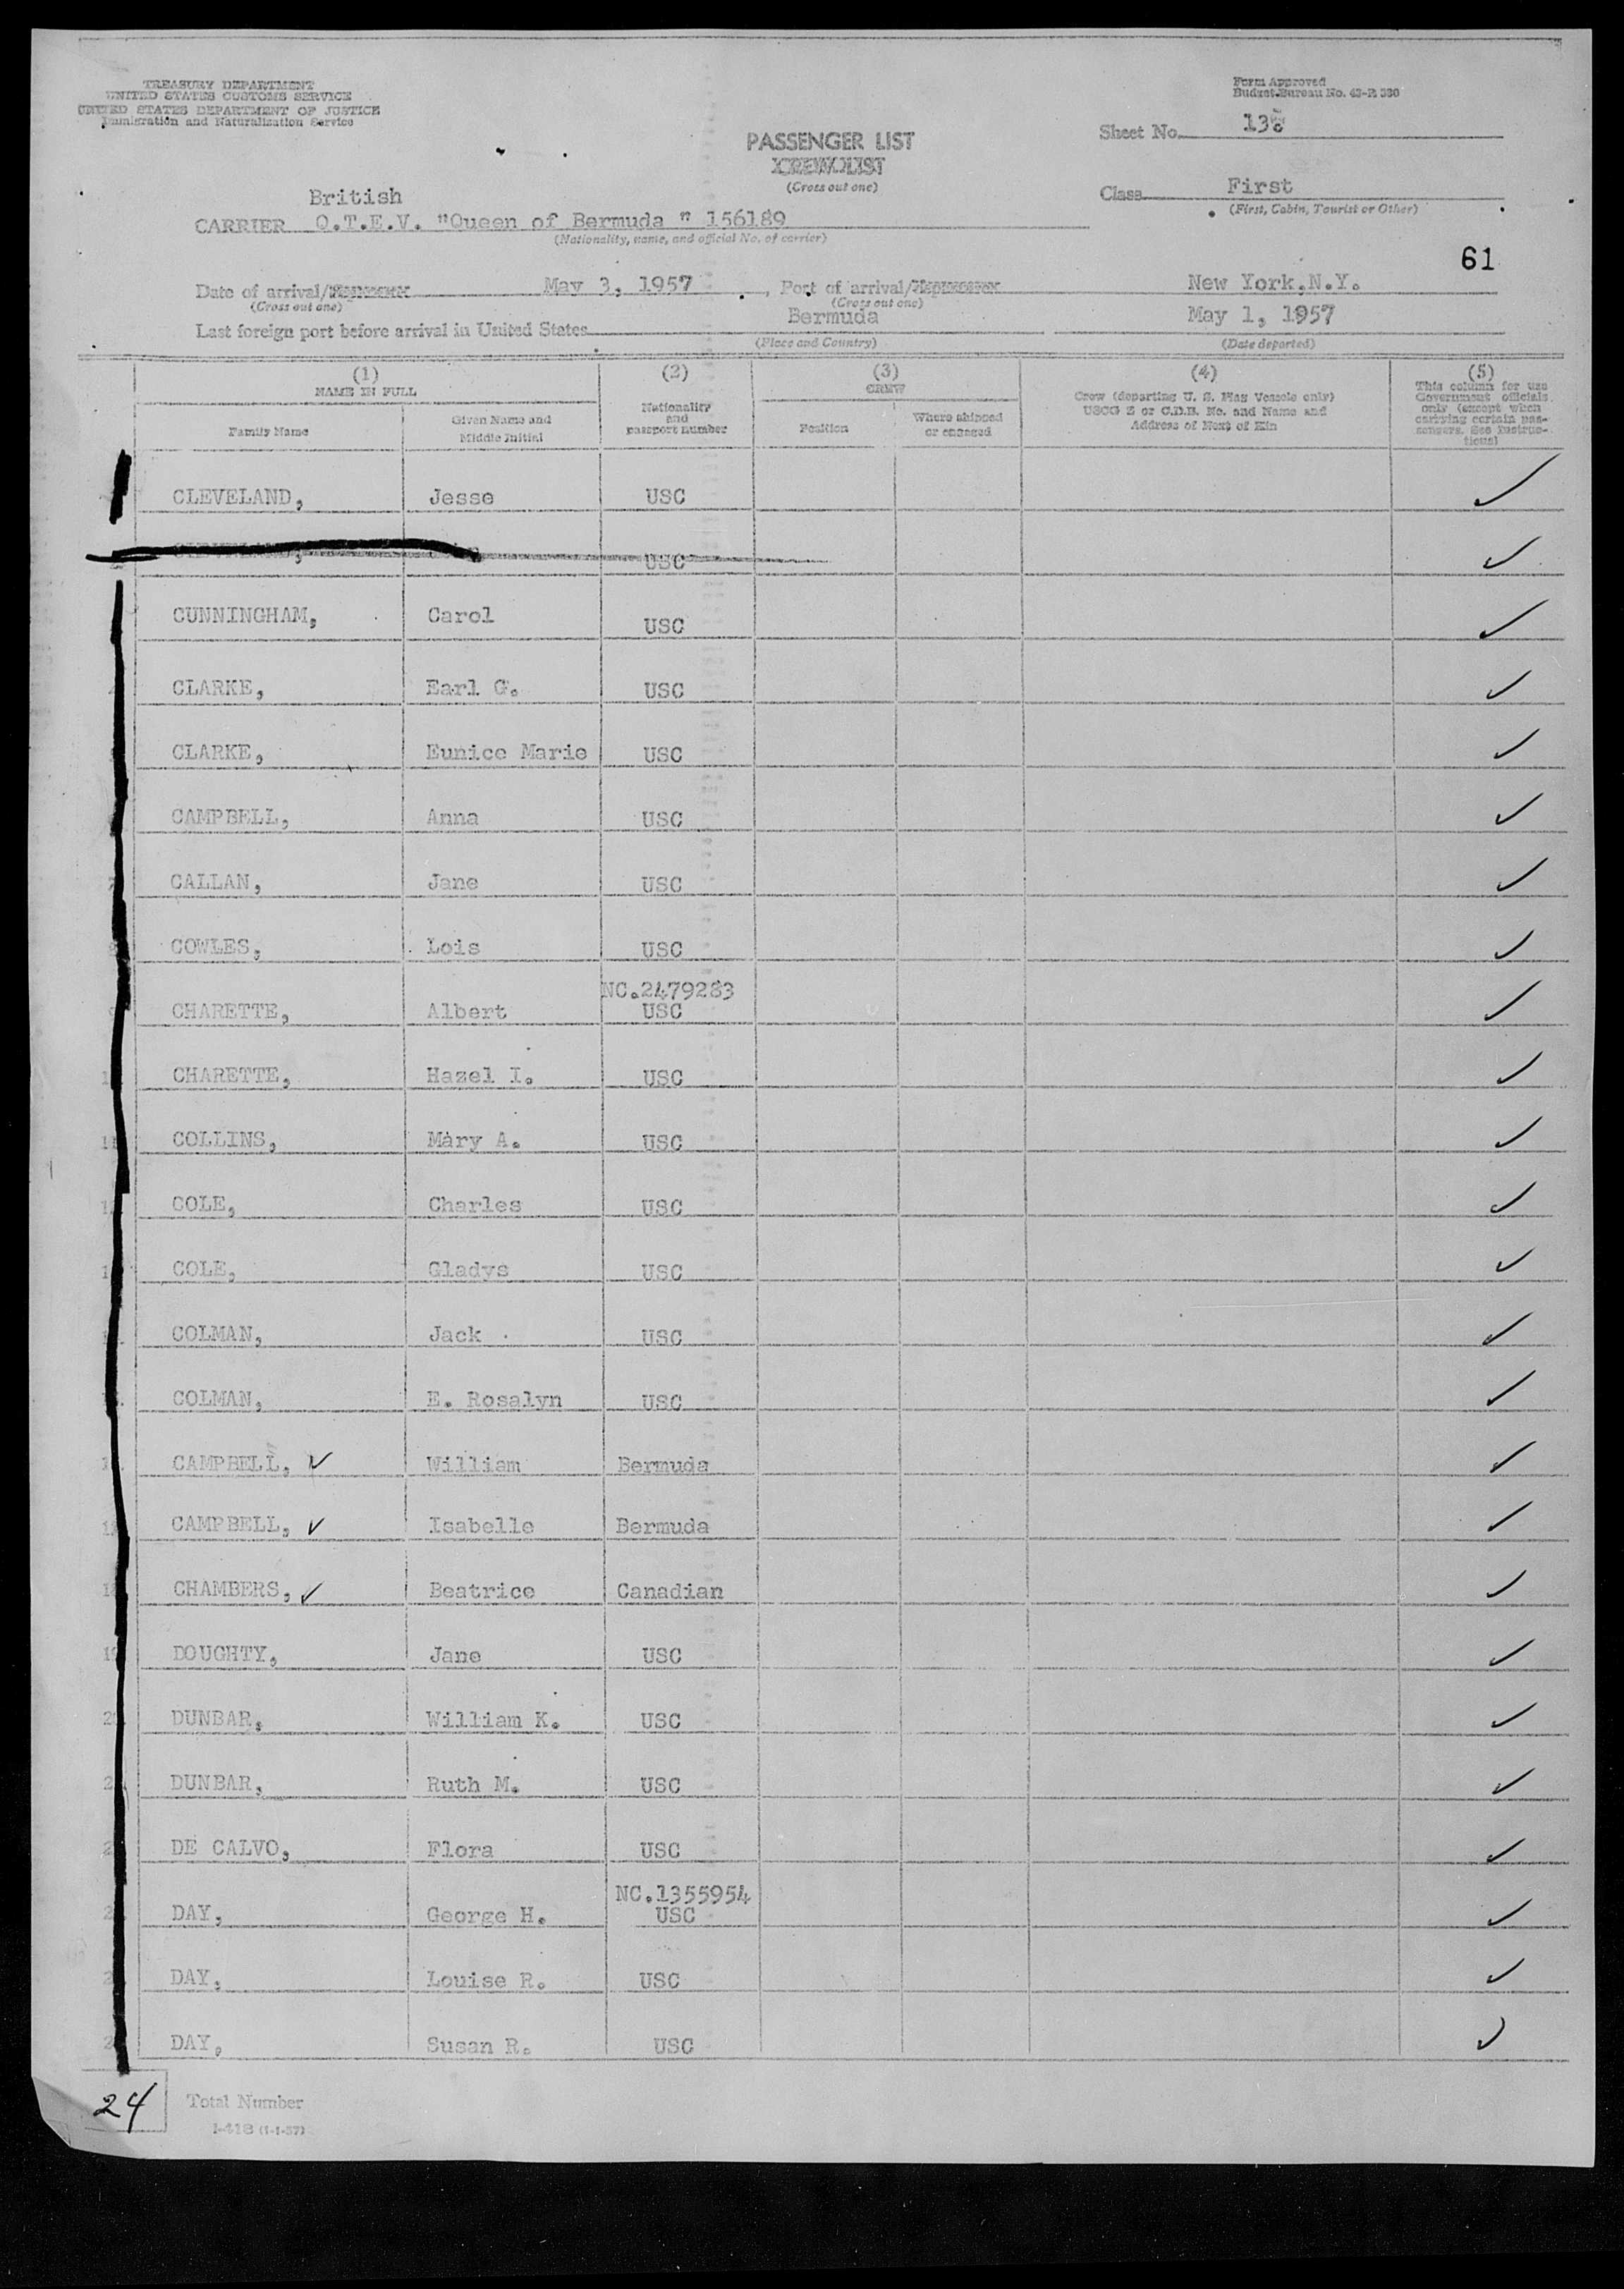 TREASURY DEPARTMENT
UNITED STATES CUSTOMS SERVICE
UNITED STATES DEPARTMENT OF JUSTICE
Immigration and Naturalization Service
Form Approved
Budget Bureau No. 43-R 330
PASSENGER LIST
CREW LIST
(Cross out one)
Sheet No. 13
Class First
(First, Cabin, Tourist or Other)
British
CARRIER Q.T.E.V. "Queen of Bermuda " 156189
(Nationality, name, and official No. of carrier)
61
Date of arrival/ May 3, 1957, Port of arrival/ New York, N.Y.
(Cross out one) (Cross out one)
Last foreign port before arrival in United States Bermuda May 1, 1957
(Place and Country) (Date departed)
(1) (2) (3) (4) (5)
NAME IN FULL
Family Name
Given Name and Middle Initial
Nationality and passport number
CREW
Position
Where shipped or engaged
Crew (departing U. S. Flag Vessels only)
USCG Z or C.D.B. No. and Name and
Address of Next of Kin
This column for use
Government officials
only (except when
carrying certain pas-
sengers. See Instruc-
tions)
CLEVELAND, Jesse USC ✓
CLEVELAND, USC ✓
CUNNINGHAM, Carol USC ✓
CLARKE, Earl G. USC ✓
CLARKE, Eunice Marie USC ✓
CAMPBELL, Anna USC ✓
CALLAN, Jane USC ✓
COWLES, Lois USC ✓
NC.2479283
CHARETTE, Albert USC ✓
CHARETTE, Hazel I. USC ✓
COLLINS, Mary A. USC ✓
COLE, Charles USC ✓
COLE, Gladys USC ✓
COLMAN, Jack USC ✓
COLMAN, E. Rosalyn USC ✓
CAMPBELL, ✓ William Bermuda ✓
CAMPBELL, ✓ Isabelle Bermuda ✓
CHAMBERS, ✓ Beatrice Canadian ✓
DOUGHTY, Jane USC ✓
DUNBAR, William K. USC ✓
DUNBAR, Ruth M. USC ✓
DE CALVO, Flora USC ✓
NC.1355954
DAY, George H. USC ✓
DAY, Louise R. USC ✓
DAY, Susan R. USC ✓
24 Total Number
I-418 (1-1-57)